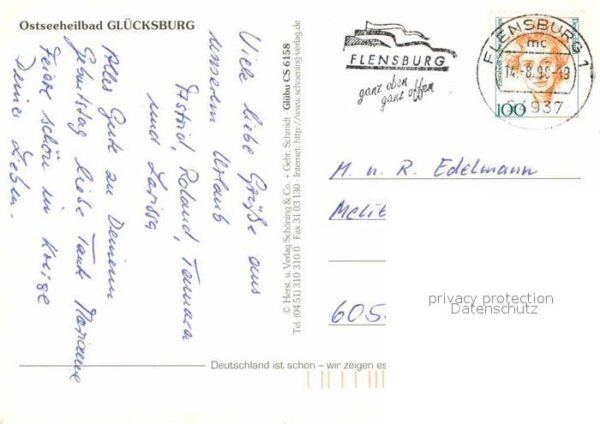 Ostseeheilbad GLÜCKSBURG
Viele liebe Grüße aus
unserem Urlaub
Astrid, Roland, Tamara
und Larissa
Alles Gute zu Deinem
Geburtstag liebe Tante Marianne
Feiere schön im Kreise
Deiner Lieben.
© Herst. u. Verlag Schöning & Co. · Gebr. Schmidt · Glübu CS 6158
Tel. (04 51) 310 310 0 Fax 31 03 130 · Internet: http://www.schoening-verlag.de
FLENSBURG
ganz oben
ganz offen
FLENSBURG 1
mc
14.-8.98-18
24937
100
M. u. R. Edelmann
605
privacy protection
Datenschutz
Deutschland ist schön – wir zeigen es